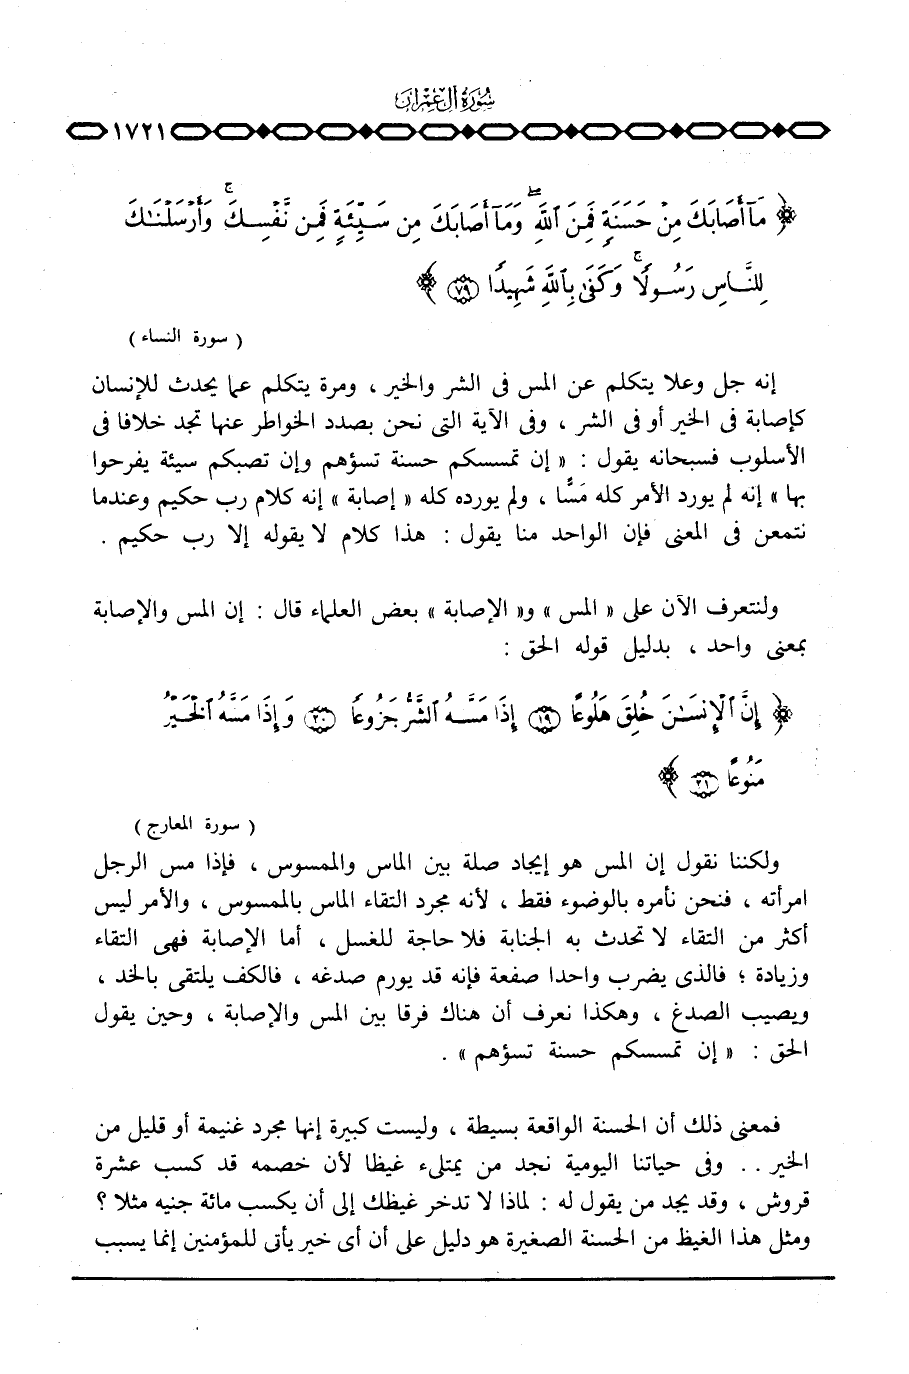 سُورَةُ آلِ عِمْرَانَ
١٧٢١
﴿ مَّآ أَصَابَكَ مِنْ حَسَنَةٍ فَمِنَ ٱللَّهِ ۖ وَمَآ أَصَابَكَ مِن سَيِّئَةٍ فَمِن نَّفْسِكَ ۚ وَأَرْسَلْنَـٰكَ
لِلنَّاسِ رَسُولًا ۚ وَكَفَىٰ بِٱللَّهِ شَهِيدًا ٧٩ ﴾
( سورة النساء )
إنه جل وعلا يتكلم عن المس فى الشر والخير ، ومرة يتكلم عما يحدث للإنسان
كإصابة فى الخير أو فى الشر ، وفى الآية التى نحن بصدد الخواطر عنها تجد خلافا فى
الأسلوب فسبحانه يقول : « إن تمسسكم حسنة تسؤهم وإن تصبكم سيئة يفرحوا
بها » إنه لم يورد الأمر كله مَسًّا ، ولم يورده كله « إصابة » إنه كلام رب حكيم وعندما
نتمعن فى المعنى فإن الواحد منا يقول : هذا كلام لا يقوله إلا رب حكيم .
ولنتعرف الآن على « المس » و« الإصابة » بعض العلماء قال : إن المس والإصابة
بمعنى واحد ، بدليل قوله الحق :
﴿ إِنَّ ٱلْإِنسَـٰنَ خُلِقَ هَلُوعًا ١٩ إِذَا مَسَّهُ ٱلشَّرُّ جَزُوعًا ٢٠ وَإِذَا مَسَّهُ ٱلْخَيْرُ
مَنُوعًا ٢١ ﴾
( سورة المعارج )
ولكننا نقول إن المس هو إيجاد صلة بين الماس والممسوس ، فإذا مس الرجل
امرأته ، فنحن نأمره بالوضوء فقط ، لأنه مجرد التقاء الماس بالممسوس ، والأمر ليس
أكثر من التقاء لا تحدث به الجنابة فلا حاجة للغسل ، أما الإصابة فهى التقاء
وزيادة ؛ فالذى يضرب واحدا صفعة فإنه قد يورم صدغه ، فالكف يلتقى بالخد ،
ويصيب الصدغ ، وهكذا نعرف أن هناك فرقا بين المس والإصابة ، وحين يقول
الحق : « إن تمسسكم حسنة تسؤهم » .
فمعنى ذلك أن الحسنة الواقعة بسيطة ، وليست كبيرة إنها مجرد غنيمة أو قليل من
الخير .. وفى حياتنا اليومية نجد من يمتلىء غيظا لأن خصمه قد كسب عشرة
قروش ، وقد يجد من يقول له : لماذا لا تدخر غيظك إلى أن يكسب مائة جنيه مثلا ؟
ومثل هذا الغيظ من الحسنة الصغيرة هو دليل على أن أى خير يأتى للمؤمنين إنما يسبب